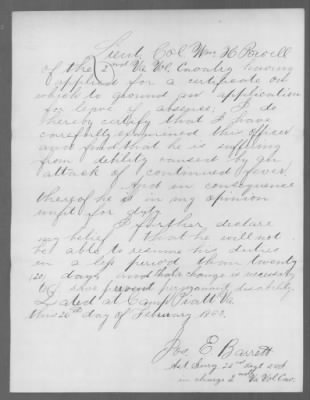 Lieut Col Wm H Powell
of the 2nd Va Vol. Cavalry having
applied for a certificate on
which to ground an application
for leave of absence, I do
hereby certify that I have
carefully examined this officer
and find that he is suffering
from debility caused by an
attack of continued fever,
And in consequence
thereof he is in my opinion
unfit for duty.
I further declare
my belief that he will not
be able to resume his duties
in a less period than twenty
(20) days and that a change is necessary
to prevent permanent disability.
Dated at Camp Piatt Va
this 20th day of February 1863.
Jos. E. Barrett
Ast Surg
in charge 2nd Va Vol Cav.